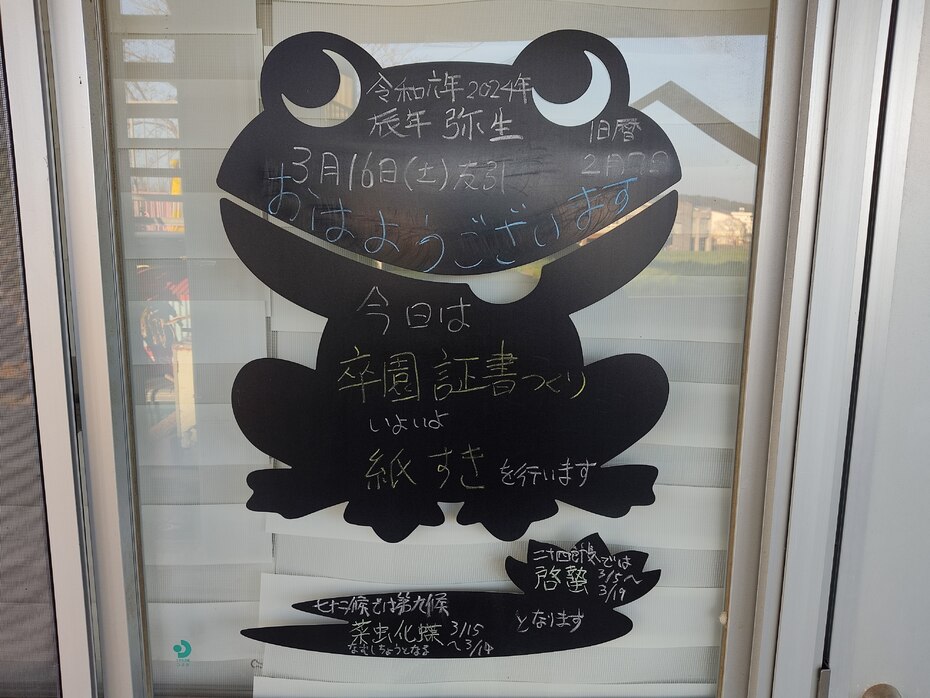 令和六年2024年
辰年 弥生
旧暦
2月7日
3月16日(土)友引
おはようございます
今日は
卒園証書つくり
いよいよ
紙すきを行います
二十四節気では
啓蟄 3/5〜
3/19
七十二候では第九候
菜虫化蝶 3/15
なむしちょうとなる 〜3/19
となります